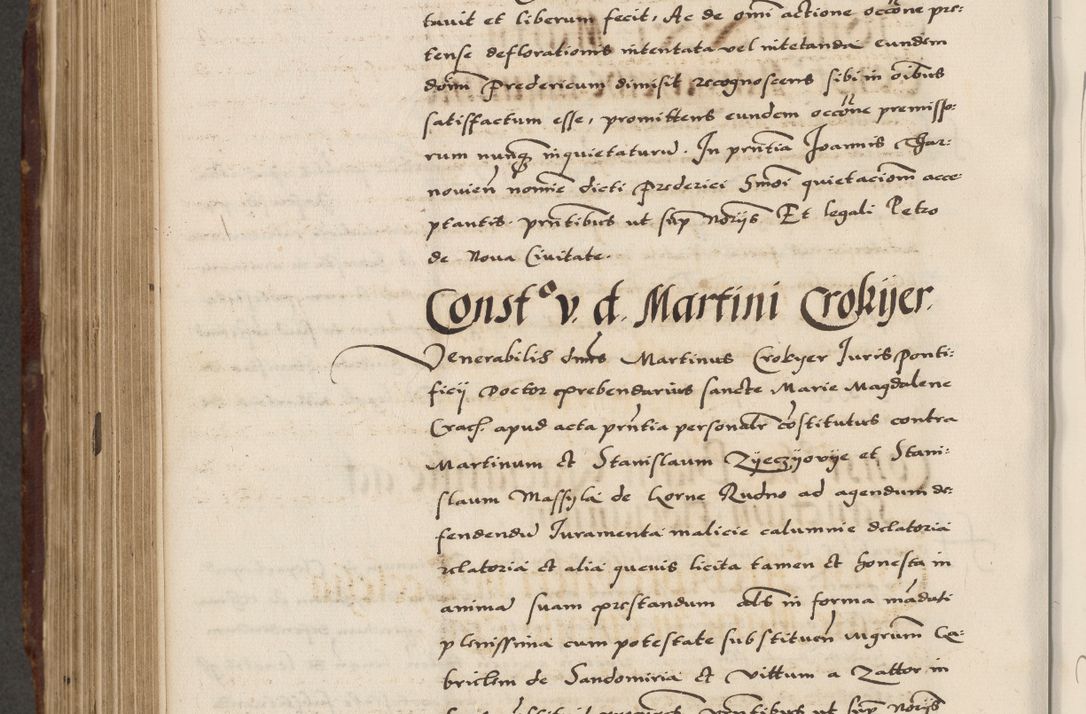 tauit et liberum fecit, Ac de om̄i actione occōne pre:
tense deflorationis intentata vel intētanda eundem
dom̄ Predericum dimisit recognoscens sibi in oībus
satisfactum esse, promittens eundem occōne premisso:
rum nunq̄ inquietaturū. In pn̄tia Joannis Char:
novien̄ nomīe dicti Prederici Smoi quietaciom̄ acce:
ptantis. pn̄tibus ut sup̄ Norijs Et legali Petro
de Noua Ciuitate.
Const⁰ v. d. Martini Crokyer.
Venerabilis dn̄s Martinus Crokyer Iuris Ponti:
ficij Doctor prebendarius sancte Marie Magdalene
Crac̄. apud acta pn̄tia personalr̄ cōstitutus contra
Martinum et Stanislaum Zyeczyovye et Stani:
slaum Massyla de Korne Rudno ad agendum de:
fendendū Iuramenta malicie calumnie delatoria
relatoria et alia quevis licita tamen et honesta in
animā suam prestandum als in forma mādati
plenissima cum potestate substituen̄ vigrum̄ Ga:
brielem de Sandomiria et Vittum a Zattor in
pn̄tibus ut sup̄ Norijs